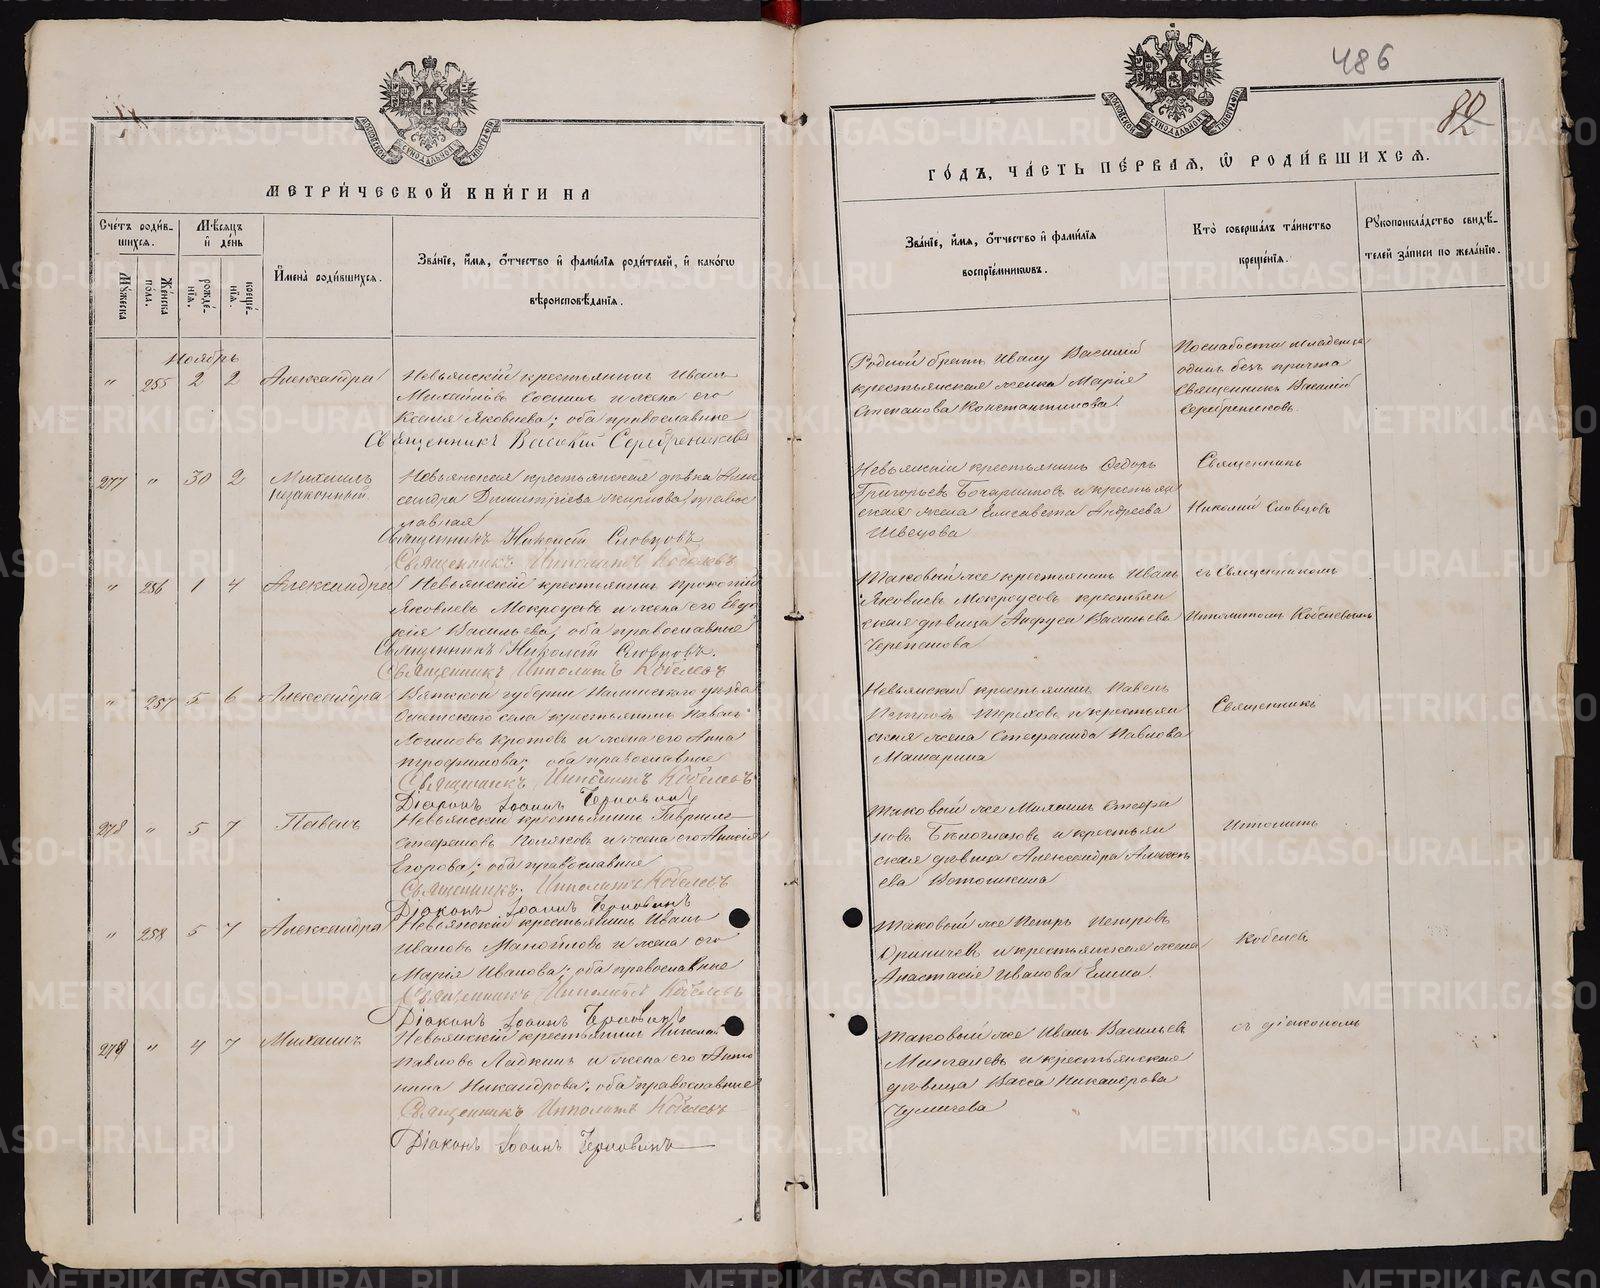 МЕТРИ́ЧЕСКОЙ КНИ́ГИ НА
Сче́тъ роди́в-
шихсѧ.
Мѣ́сѧцъ
и҆ день
Мꙋ́жеска
Же́нска
пола.
рожде́-
нїѧ.
креще́-
нїѧ.
И҆мена̀ роди́вшихсѧ.
Зва́нїе, и҆́мѧ, ѻ҆́тчество и҆ фами́лїѧ роди́телей, и҆ како́гѡ
вѣроисповѣ́данїѧ.
Ноябрь
" 255 2 2 Александра
Невьянскій крестьянинъ Иванъ
Михайловъ и жена его
Ксенія Яковлева; оба православные
Священникъ Василій Серебренниковъ
277 " 30 2 Михаилъ
незаконный
Невьянская крестьянская дѣвка Алек
сандра Димитріева правос
лавная
Священникъ Николай Словцовъ
Священникъ Ипполитъ Кобелевъ
" 256 1 4 Александра
Невьянскій крестьянинъ Прокопій
Яковлевъ Мокроусовъ и жена его Евдо
кія Васильева; оба православные
Священникъ Николай Словцовъ.
Священникъ Ипполитъ Кобелевъ
" 257 5 6 Александра
Вятской губерніи уѣзда
села крестьянинъ Павелъ
Логиновъ Кротовъ и жена его Анна
Трофимова; оба православные
Священникъ Ипполитъ Кобелевъ
Діаконъ Іоаннъ
278 " 5 7 Павелъ
Невьянскій крестьянинъ Гавріилъ
Стефановъ Поляковъ и жена его Анисія
Егорова; оба православные
Священникъ Ипполитъ Кобелевъ
Діаконъ Іоаннъ
" 258 5 7 Александра
Невьянскій крестьянинъ Иванъ
Ивановъ и жена его
Марія Иванова; оба православные
Священникъ Ипполитъ Кобелевъ
Діаконъ Іоаннъ
279 " 4 7 Михаилъ
Невьянскій крестьянинъ Николай
Павловъ Ладкинъ и жена его Анто
нина Никандрова; оба православные
Священникъ Ипполитъ Кобелевъ
Діаконъ Іоаннъ
486
82
ГО́ДЪ, ЧА́СТЬ ПЕ́РВАѦ, Ѡ҆ РОДИ́ВШИХСѦ.
Зва́нїе, и҆́мѧ, ѻ҆́тчество и҆ фами́лїѧ
воспрїе́мникѡвъ.
Кто̀ соверша́лъ та́инство
креще́нїѧ.
Рꙋкоприкла́дство свидѣ́-
телей за́писи по жела́нїю.
Родной братъ Ивану Василій
крестьянская женка Марія
Степанова Константинова.
По слабости младенца
одинъ безъ причта
Священникъ Василій
Серебренниковъ.
Невьянскій крестьянинъ Ѳедоръ
Григорьевъ и крестьян
ская жена Елисавета Андреева
Швецова
Священникъ
Николай Словцовъ
Таковый же крестьянинъ Иванъ
Яковлевъ Мокроусовъ крестьян
ская дѣвица Анфуса Васильева
Черепанова
съ Священникомъ
Ипполитомъ Кобелевымъ
Невьянскій крестьянинъ Павелъ
Петровъ Тереховъ и крестьян
ская жена Стефанида Павлова
Машарина
Священникъ
Таковый же Михаилъ Стефа
новъ Бѣлоглазовъ и крестьян
ская дѣвица Александра Алексѣ
ева Ветошкина
Ипполитъ
Таковый же Петръ Петровъ
и крестьянская жена
Анастасія Иванова Елина.
Кобелевъ
Таковый же Иванъ Васильевъ
Мингалевъ и крестьянская
дѣвица Васса Никанорова
Чумичева
съ діакономъ